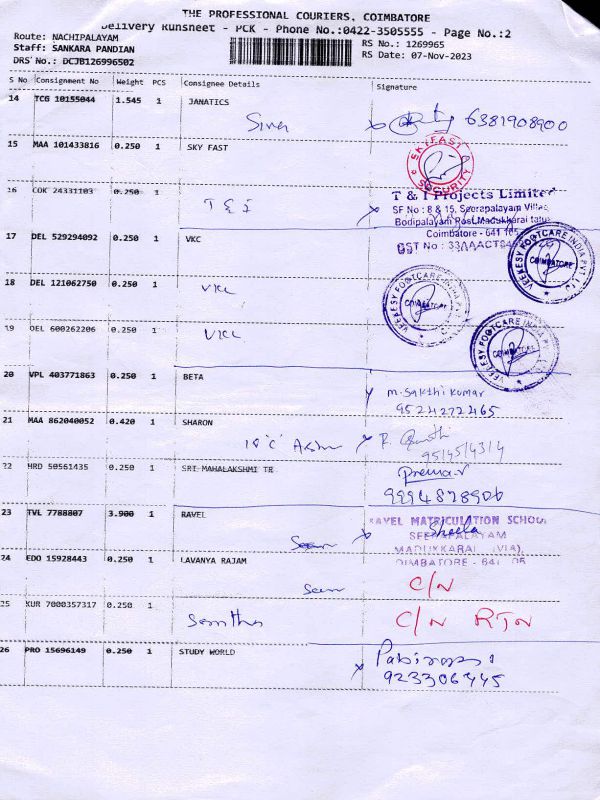 THE PROFESSIONAL COURIERS, COIMBATORE
Delivery Runsheet - PCK - Phone No.:0422-3505555 - Page No.:2
Route: NACHIPALAYAM
Staff: SANKARA PANDIAN
DRS No.: DCJB126996502
RS No.: 1269965
RS Date: 07-Nov-2023
S No Consignment No Weight PCS Consignee Details Signature
14 TCG 10155044 1.545 1 JANATICS
Siva 6381908900
15 MAA 101433816 0.250 1 SKY FAST
SKY FAST SECURITY
16 COK 24331103 0.250 1
T & I
T & I Projects Limited
SF No : 8 & 15, Seerapalayam Village
Bodipalayam Post, Madukkarai taluk
Coimbatore - 641 105
GST No : 33AAACT
17 DEL 529294092 0.250 1 VKC
VEEKESY FOOTCARE INDIA PVT LTD
COIMBATORE
18 DEL 121062750 0.250 1
VKC
VEEKESY FOOTCARE INDIA PVT
COIMBATORE
19 DEL 600262206 0.250 1
VKC
VEEKESY FOOTCARE INDIA PVT
COIMBATORE
20 VPL 403771863 0.250 1 BETA
m. Sakthi kumar
9524272465
21 MAA 862040052 0.420 1 SHARON
9514514314
22 HRD 50561435 0.250 1 SRI MAHALAKSHMI TR
Prema.v
9994878906
23 TVL 7788807 3.900 1 RAVEL
RAVEL MATRICULATION SCHOOL
Sheela
SEERAPALAYAM
MADUKKARAI (VIA),
COIMBATORE - 641 105
24 EDO 15928443 0.250 1 LAVANYA RAJAM
C/N
25 KUR 7000357317 0.250 1
C/N RTN
26 PRO 15696149 0.250 1 STUDY WORLD
923306445